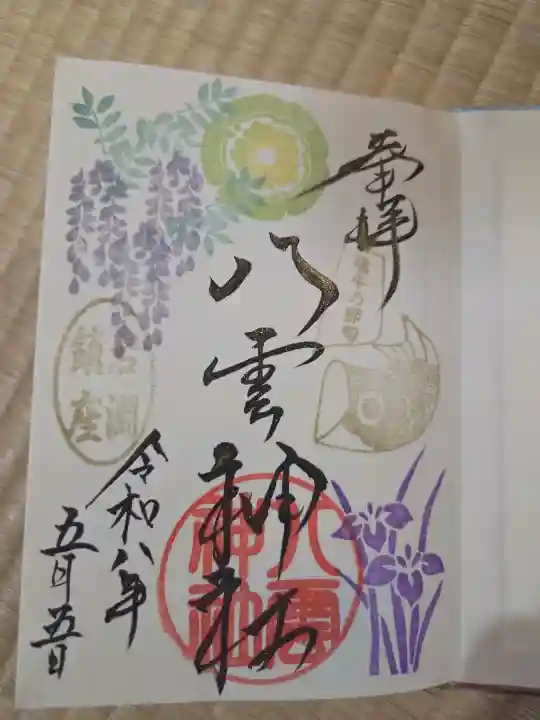 奉拝
八雲神社
八雲
神社
鎮座
令和八年
五月五日